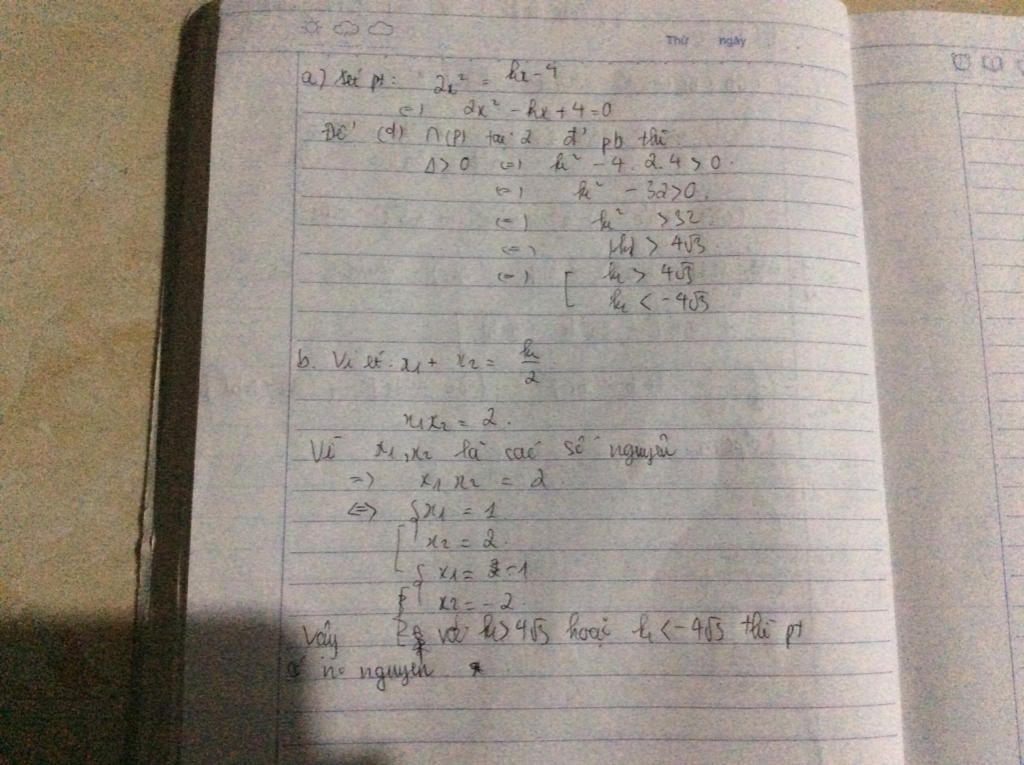 Thứ ngày
a) Xét pt: 2x² = kx - 4
(=) 2x² - kx + 4 = 0
Để (d) ∩ (P) tại 2 đ' pb thì
Δ > 0 (=) k² - 4.2.4 > 0.
(=) k² - 32 > 0.
(=) k² > 32
(=) |k| > 4√3
(=) [ k > 4√3
k < -4√3
b. Vi ét: x₁ + x₂ = k/2
x₁x₂ = 2.
Vì x₁, x₂ là các số nguyên
=) x₁x₂ = 2
<=> { x₁ = 1
[ x₂ = 2.
{ x₁ = -1
x₂ = -2
Vậy với k > 4√3 hoặc k < -4√3 thì pt
có n° nguyên.